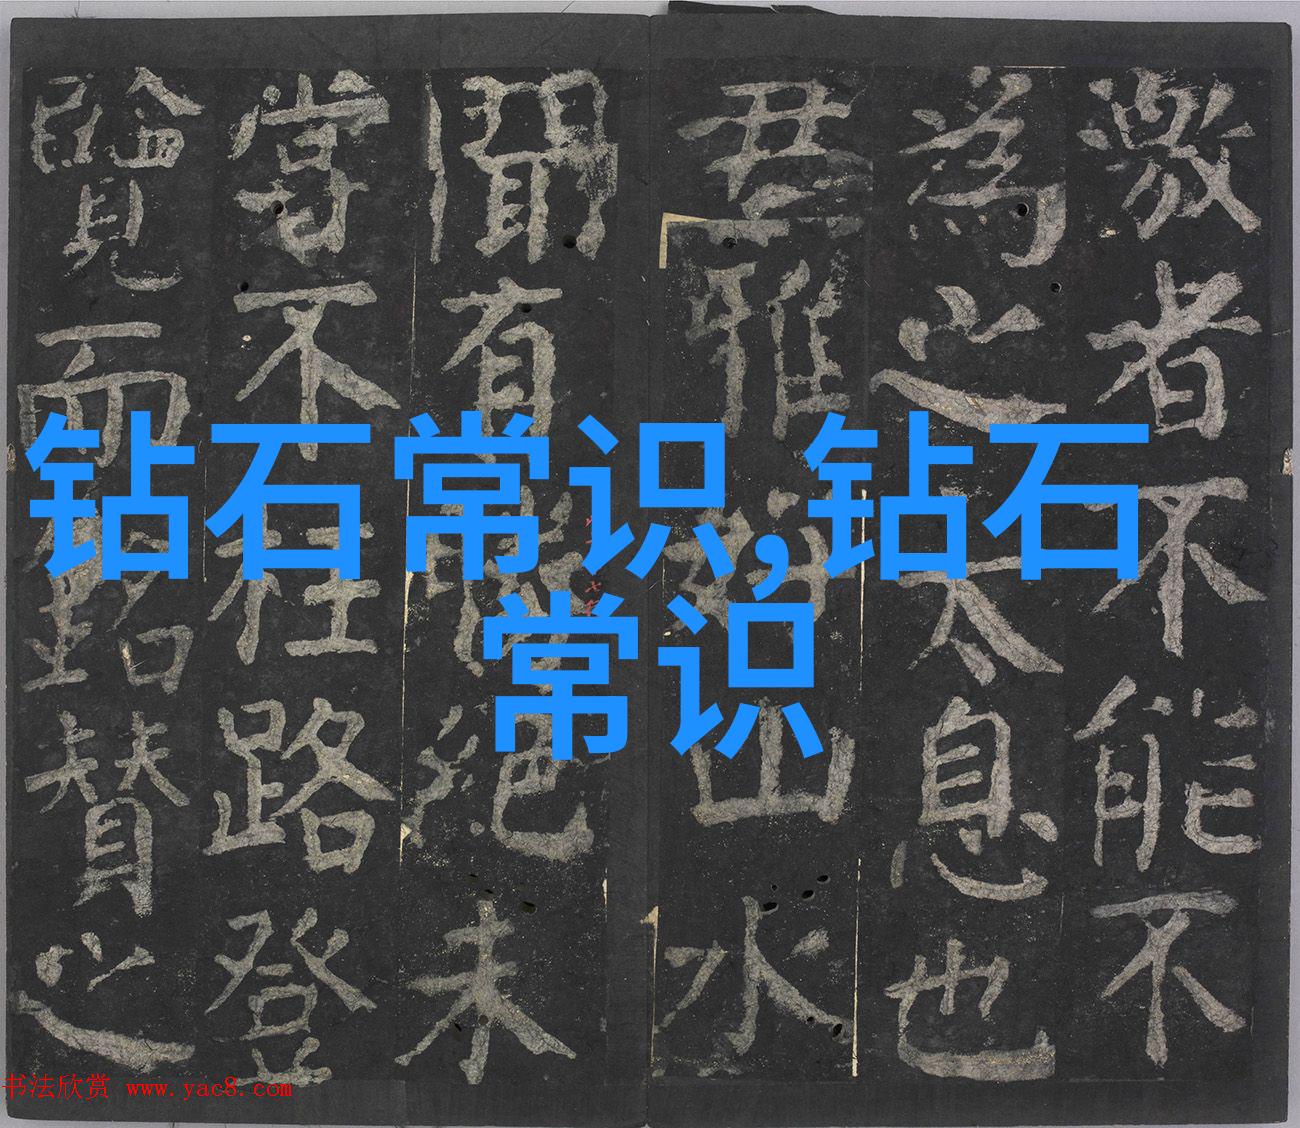 钻石常识,钻石
常识
激者不能不
為之太息也
君雅好山水
聞有絕未
嘗不枉路登
覽而贊之
书法欣赏 www.yac8.com